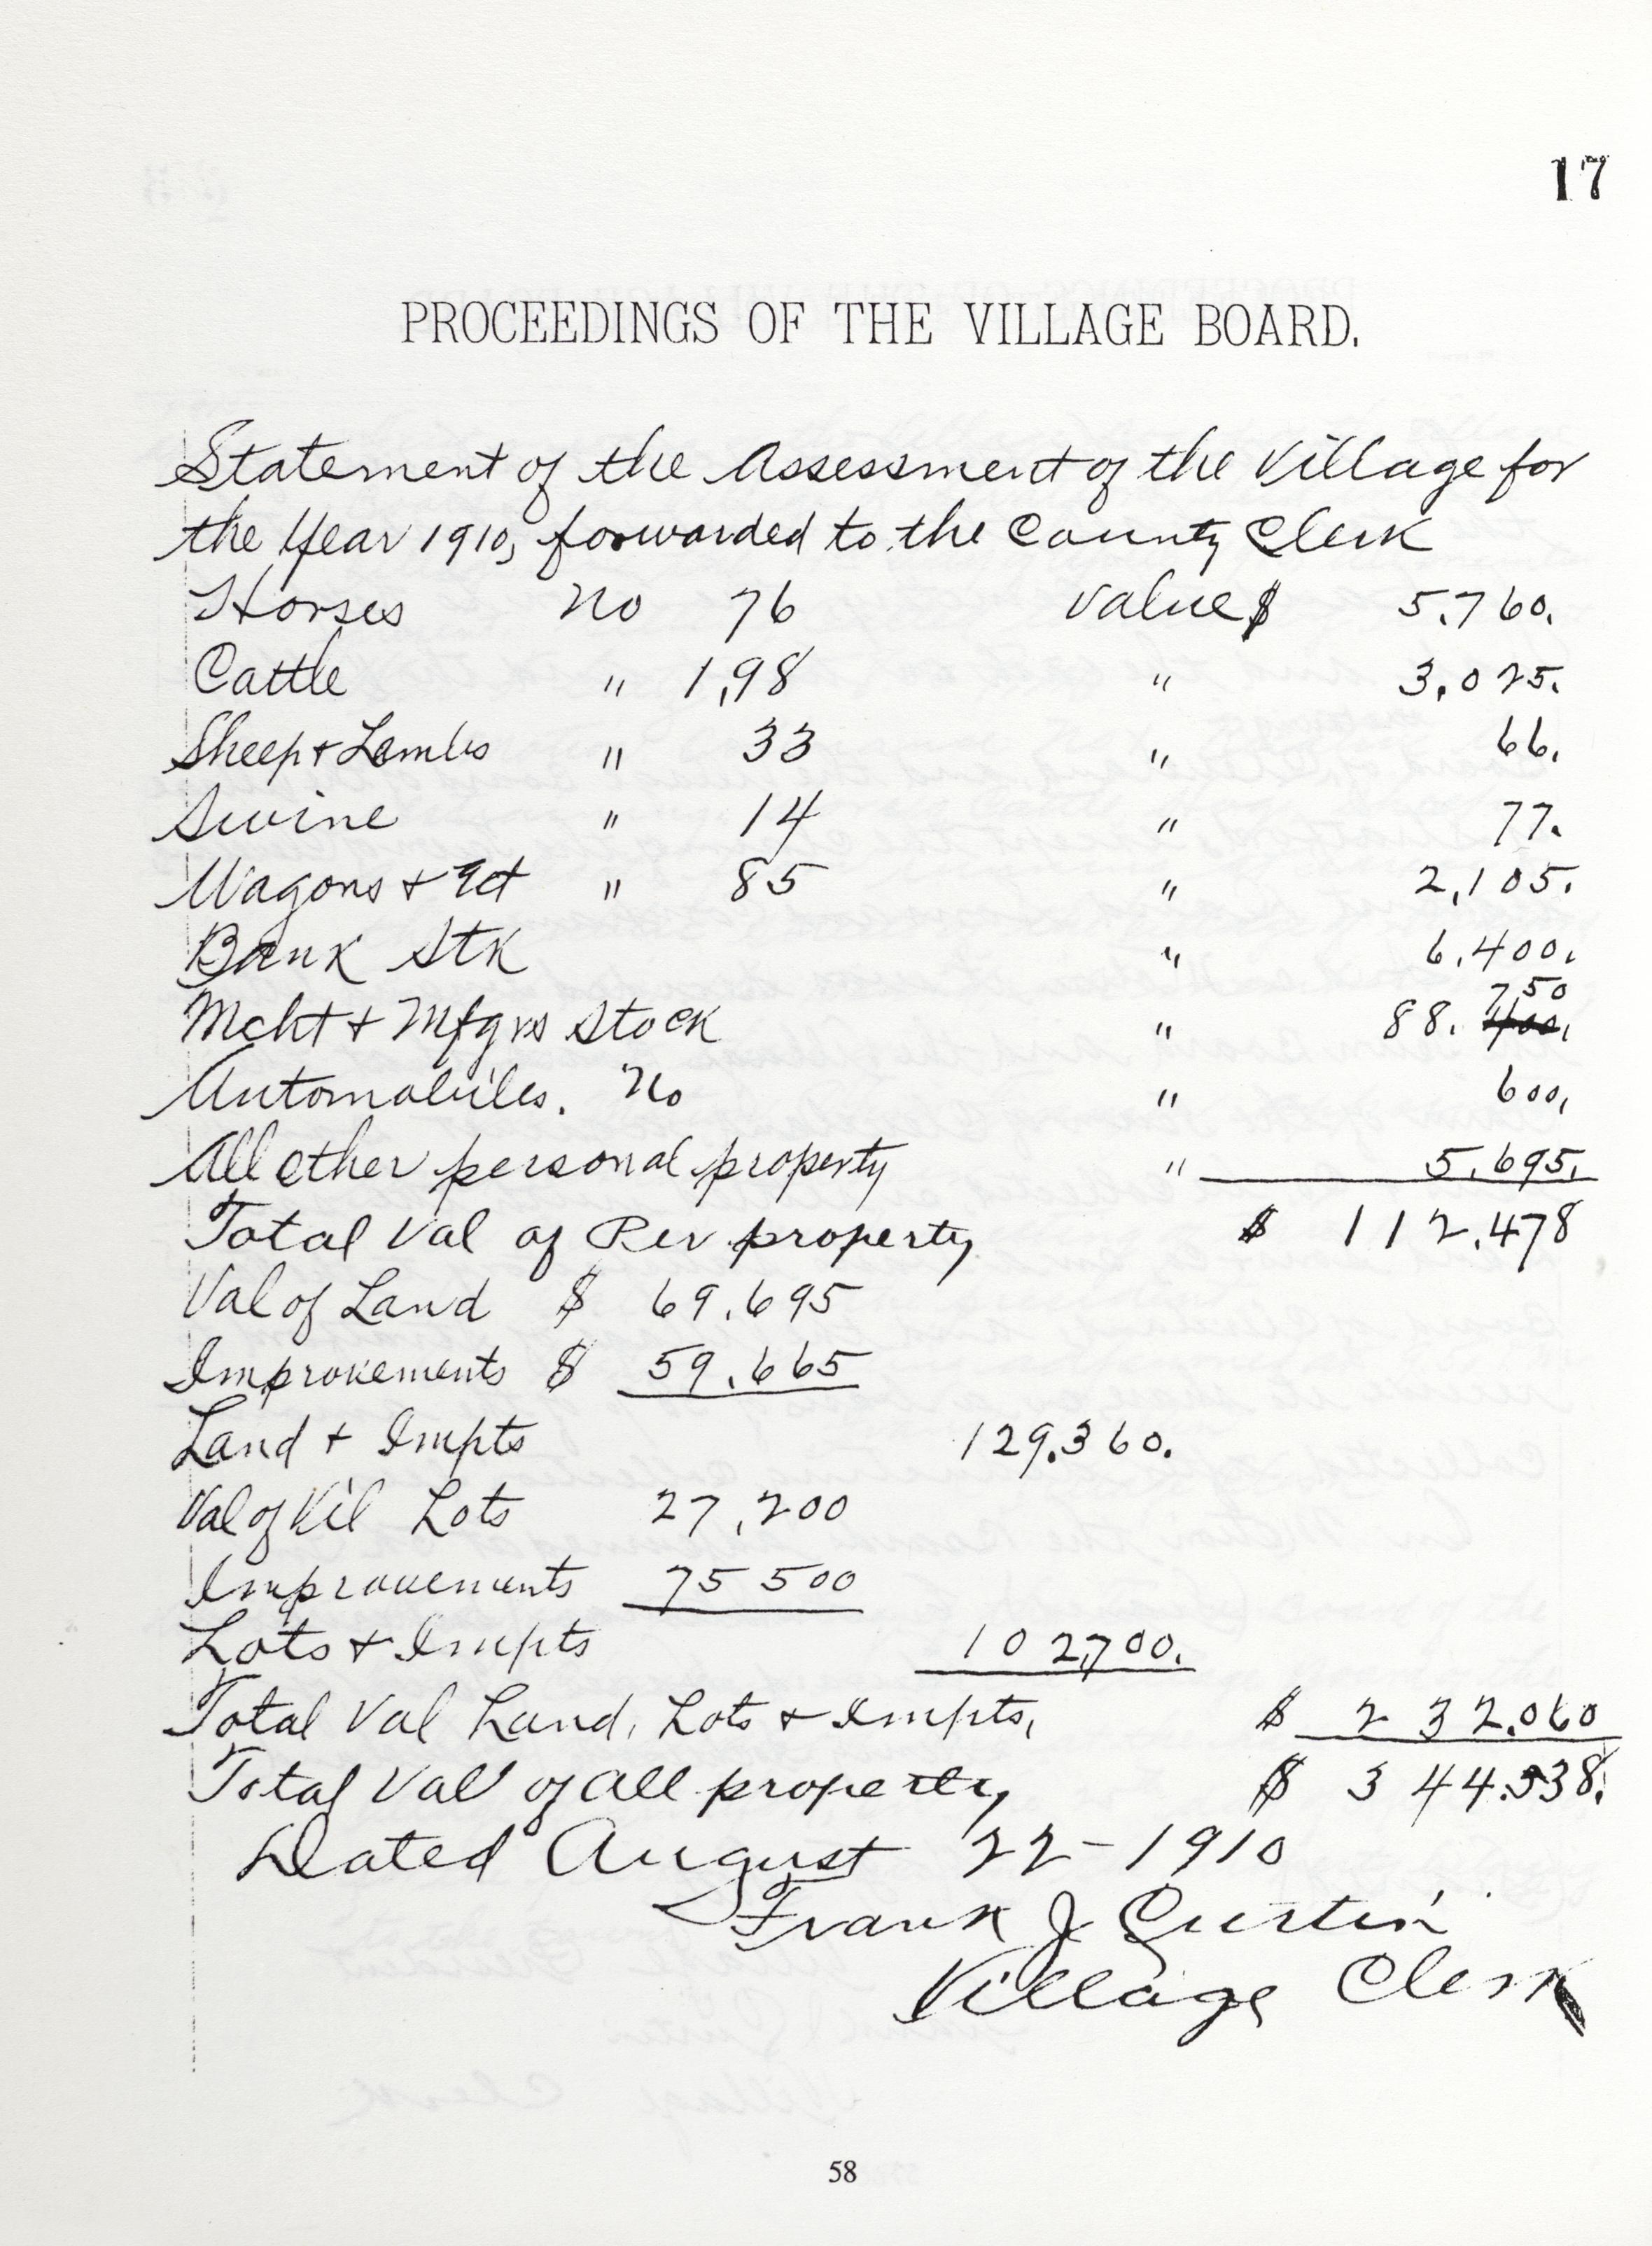 17
PROCEEDINGS OF THE VILLAGE BOARD.
Statement of the Assessment of the Village for
the Year 1910, forwarded to the County Clerk
Horses No 76 Value $ 5.760.
Cattle " 1,98 " 3,025.
Sheep + Lambs " 33 " 66.
Swine " 14 " 77.
Wagons + " 85 " 2,105.
Bank Stk " 6.400.
Mcht + Mfgrs Stock " 88. 750 400.
Automobiles. No " 600,
All other personal property " 5.695.
Total Val of Per property $ 112.478
Val of Land $ 69.695
Improvements $ 59.665
Land + Impts 129.360.
Val of Vil Lots 27,200
Improvements 75 500
Lots + Impts 102,700.
Total Val Land, Lots + Impts, $ 232.060
Total Val of all property $ 344.538.
Dated August 22 - 1910
Frank J Curtin
Village Clerk
58